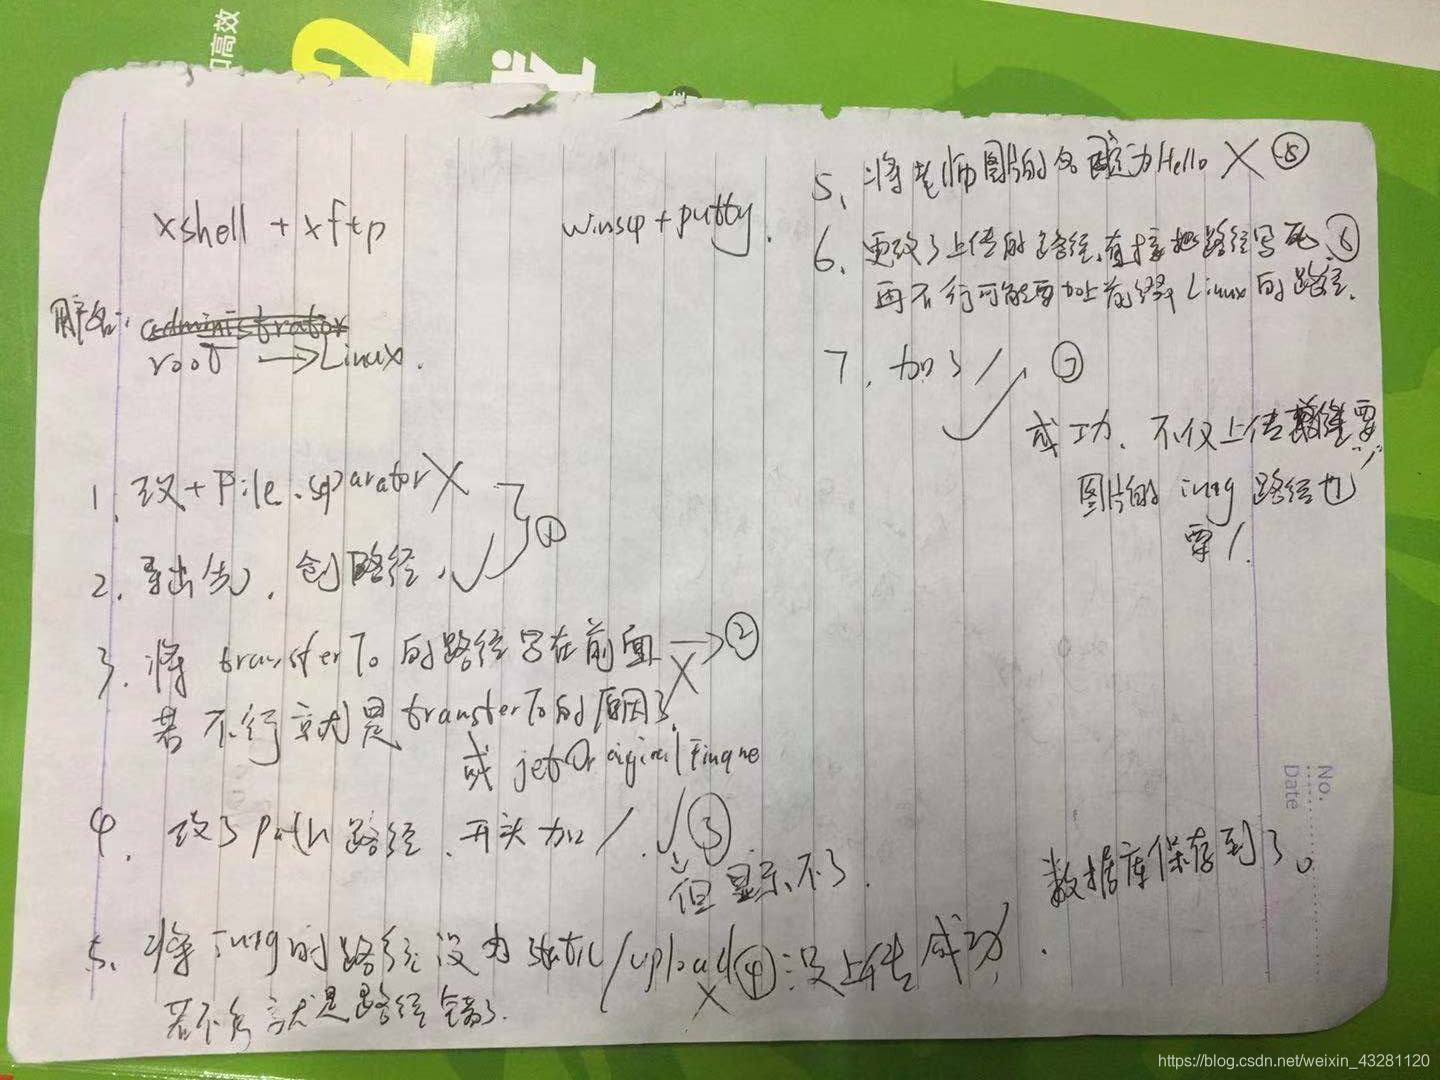 和高效
2
xshell + xftp
winscp + putty.
用户名: administrator
root → Linux.
1. 改 + File.separator X
①
2. 导出先, 创路径. ✓
3. 将 transferTo 的路径写在前面 → ②
X
若不行就是transferTo的原因了.
或 getOriginalFiname
4. 改了path路径, 开头加 / . ✓ ③
但显示不了.
5. 将img的路径设为static/upload ④ 没上传成功.
X
若不行就是路径错了.
5. 将老师图片的名改为Hello X ⑤
6. 更改了上传的路径, 直接把路径写死. ⑥
再不行可能要加上前缀Linux的路径.
7. 加了 / ✓ ⑦
成功. 不仅上传路径要"/"
图片的 img 路径也
要 /.
数据库保存到了。
No.
Date
https://blog.csdn.net/weixin_43281120